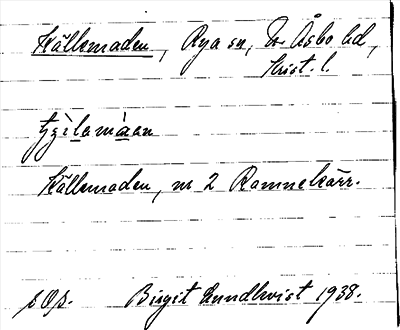 Källemaden, Rya sn, N. Åsbo hd,
Krist. l.
Källemaden, nr 2 Ramnekärr.
Birgit Lundkvist 1938.